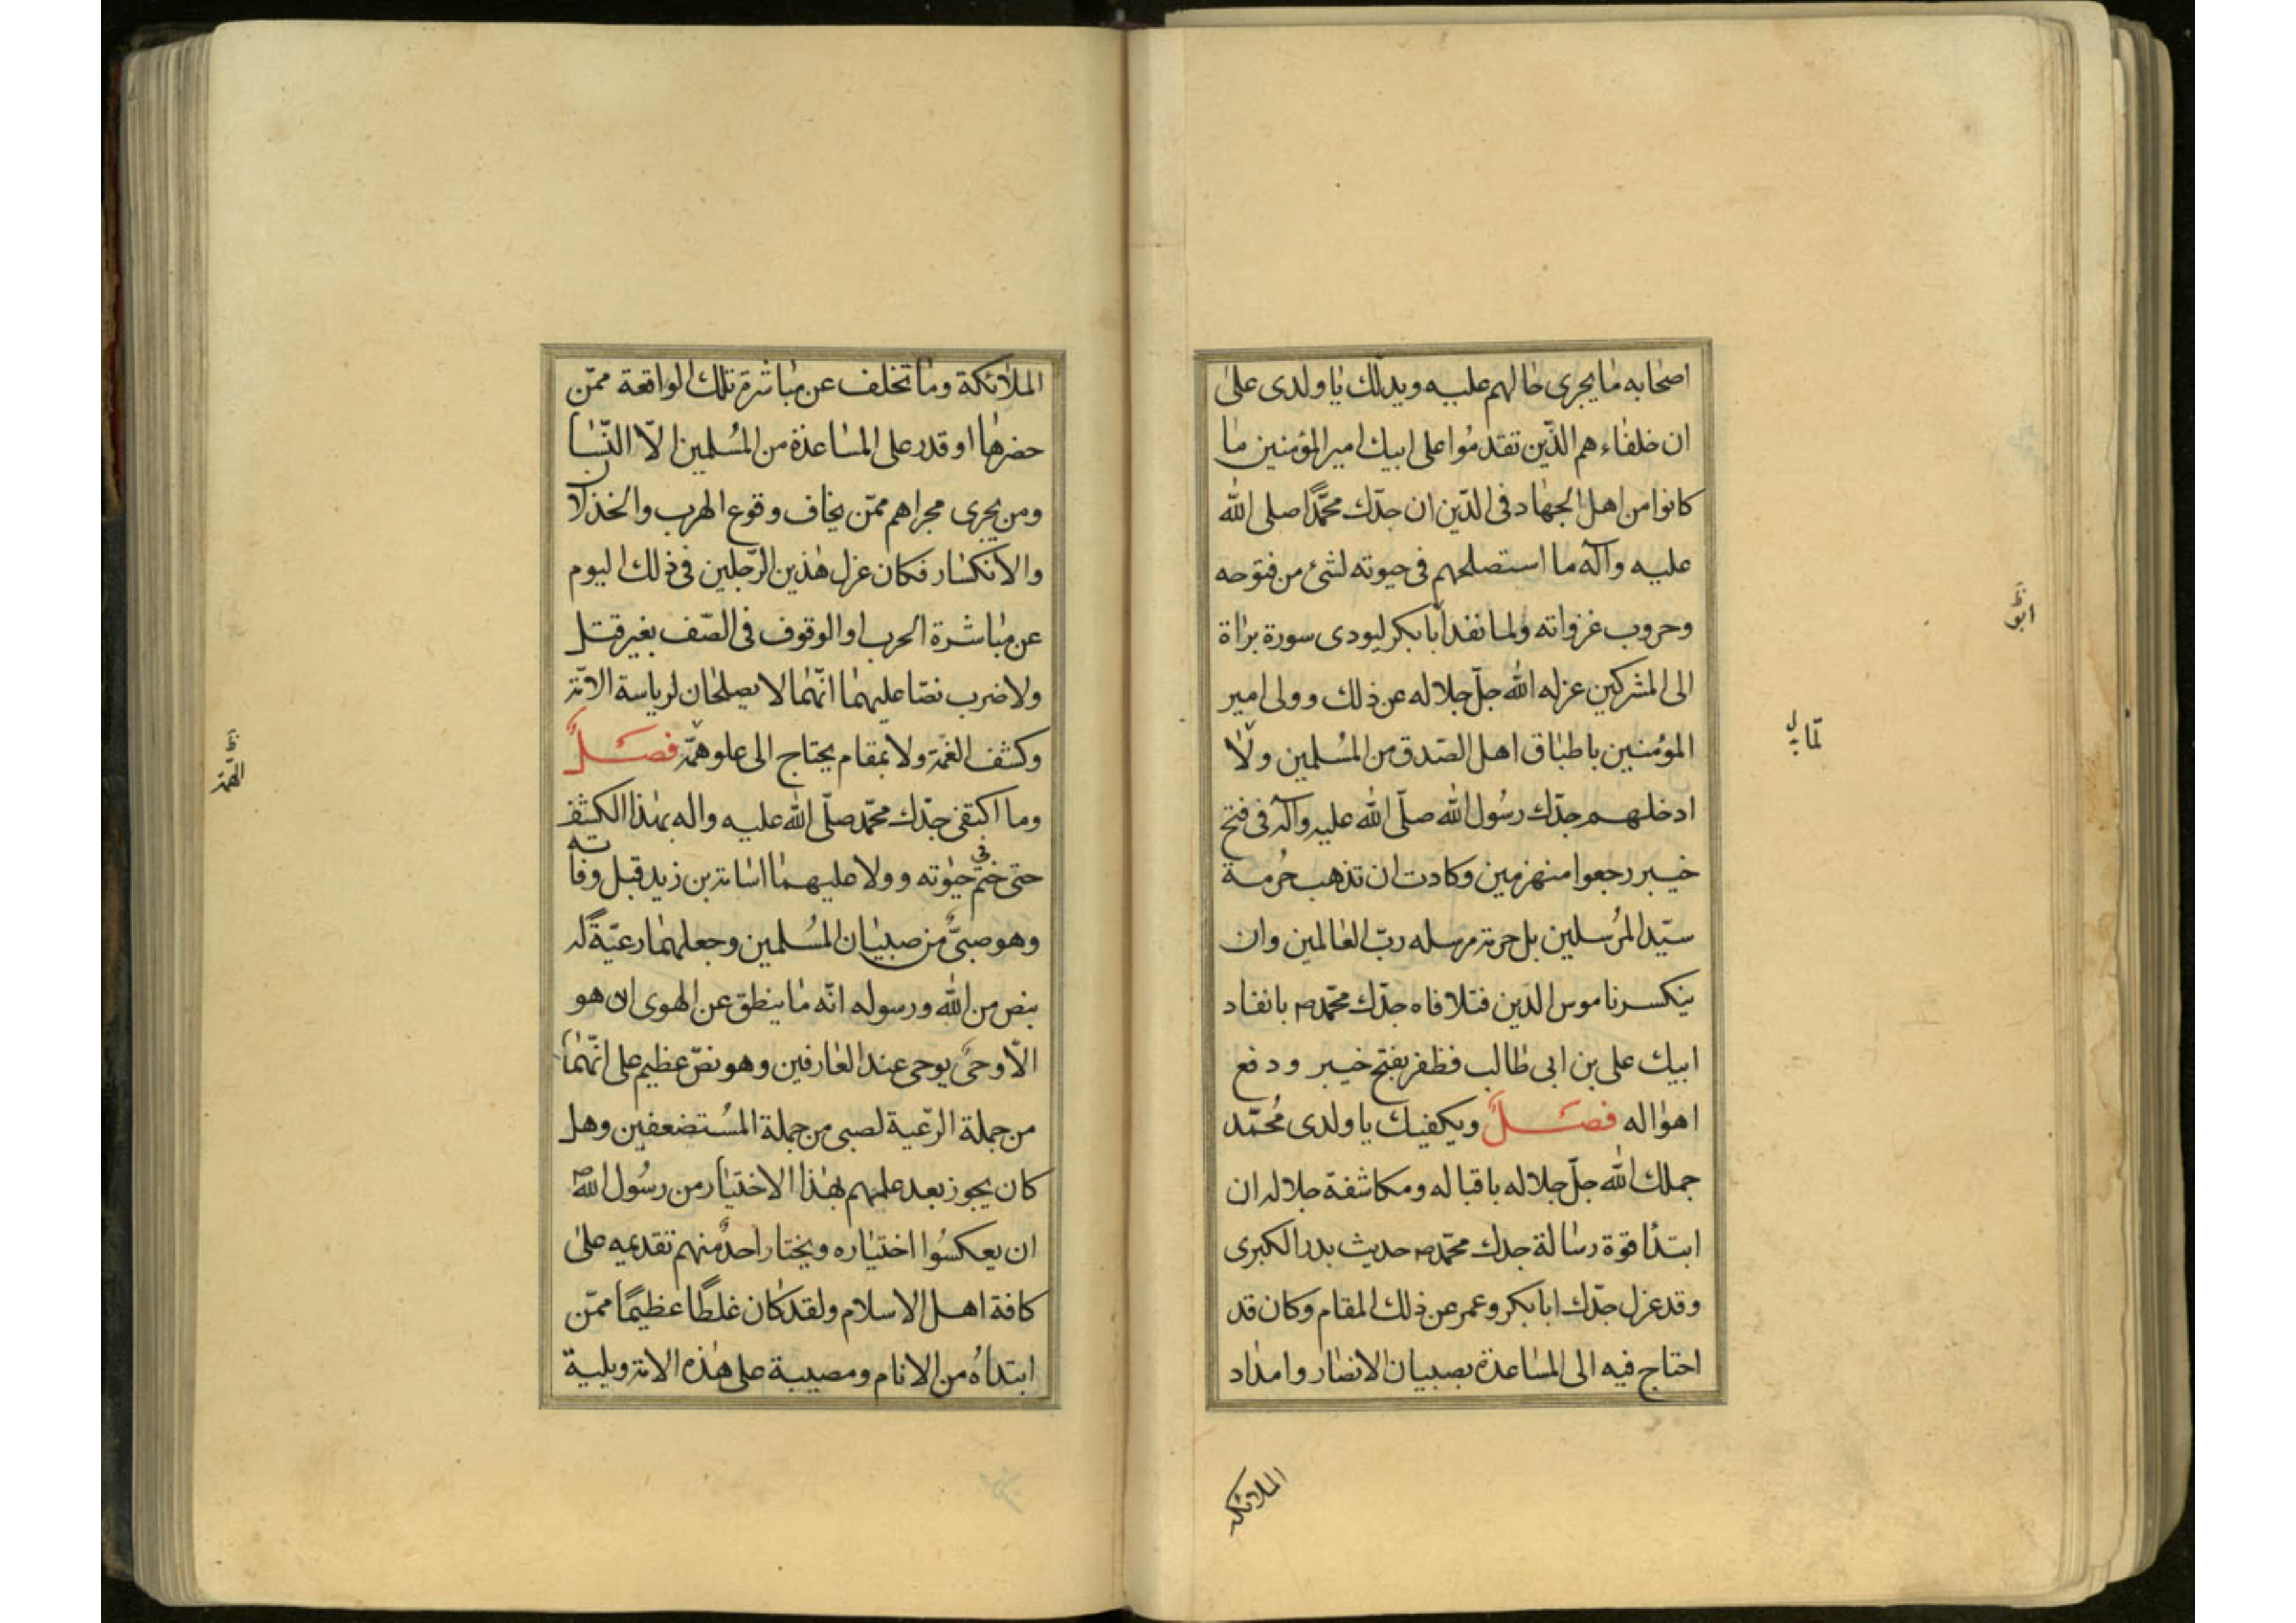 اصحابه ما يجرى حالهم عليه ويدلك يا ولدى على
ان خلفاءهم الذين تقدموا على ابيك امير المؤمنين ما
كانوا من اهل الجهاد فى الدين ان جدك محمدا صلى الله
عليه وآله ما استصلحهم فى حيوته لشئ من فتوحه
وحروب غزواته ولما نفد أبا بكر ليودى سورة براة
ابو
الى المشركين عزله الله جل جلاله عن ذلك وولى امير
المؤمنين باطباق اهل الصدق من المسلمين ولا
لما
ادخلهم جدك رسول الله صلى الله عليه وآله فى فتح
خيبر رجعوا منهزمين وكادت ان تذهب حرمة
سيد المرسلين بل حرمة مرسله رب العالمين وان
ينكسر ناموس الدين فتلافاه جدك محمد ص بانفاد
ابيك على بن ابى طالب فظفر بفتح خيبر ودفع
اهواله فصل ويكفيك يا ولدى محمد
جملك الله جل جلاله باقباله ومكاشفة جلاله ان
ابتدأ قوة رسالة جدك محمد ص حديث بدر الكبرى
وقد عزل جدك ابا بكر وعمر عن ذلك المقام وكان قد
احتاج فيه الى المساعدة بصبيان الانصار وامداد
الملائكه
الملائكة وما تخلف عن مباشرة تلك الواقعة ممن
حضرها او قدر على المساعدة من المسلمين الا النسا
ومن يجرى مجراهم ممن يخاف وقوع الهرب والخذلان
والانكسار فكان عزل هذين الرجلين فى ذلك اليوم
عن مباشرة الحرب او الوقوف فى الصف بغير قتل
ولا ضرب نصا عليهما انهما لا يصلحان لرياسة الامة
وكشف الغمة ولا بمقام يحتاج الى علو همة فصل
الهمة
وما اكتفى جدك محمد صلى الله عليه واله بهذا الكشف
حتى ختم فى حيوته وولا عليهما اسامة بن زيد قبل وفاته
وهو صبى من صبيان المسلمين وجعلهما رعية له
بنص من الله ورسوله انه ما ينطق عن الهوى ان هو
الا وحى يوحى عند العارفين وهو نص عظيم على انهما
من جملة الرعية لصبى من جملة المستضعفين وهل
كان يجوز بعد علمهم بهذا الاختيار من رسول الله ص
ان يعكسوا اختياره ويختار احد منهم تقديمه على
كافة اهل الاسلام ولقد كان غلطا عظيما ممن
ابتداه من الانام ومصيبة على هذه الامة وبلية